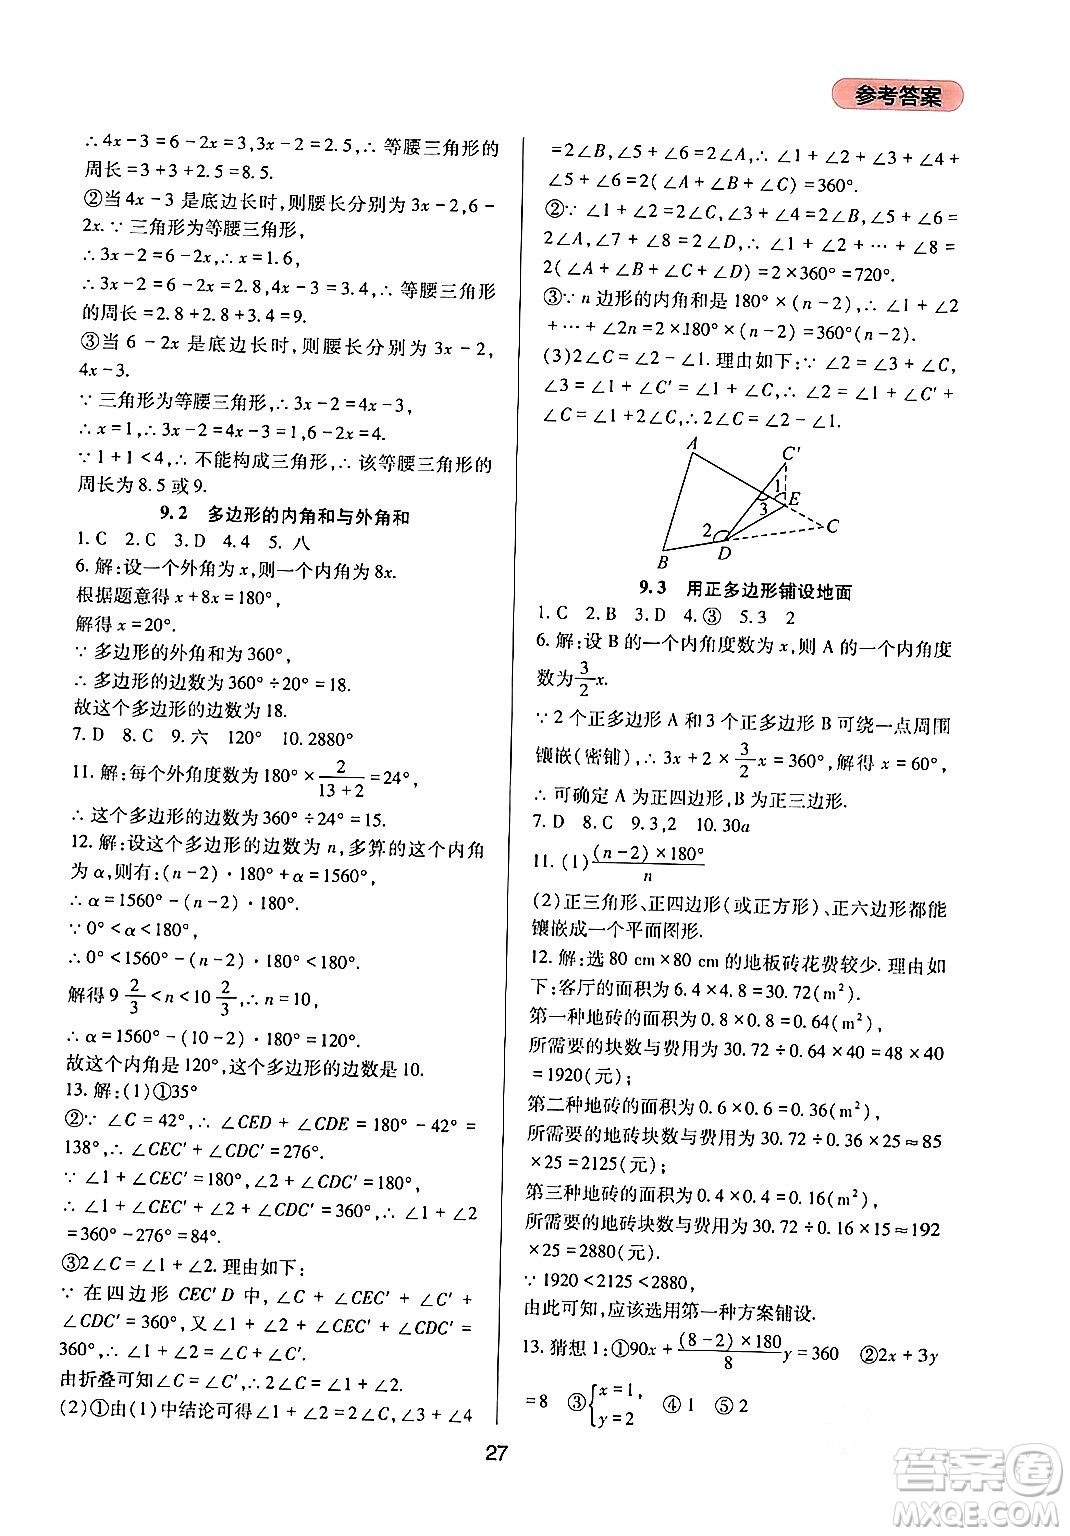 参考答案
∴4x-3=6-2x=3,3x-2=2.5,∴等腰三角形的
周长=3+3+2.5=8.5.
②当4x-3是底边长时,则腰长分别为3x-2,6-
2x.∵三角形为等腰三角形,
∴3x-2=6-2x,∴x=1.6,
∴3x-2=6-2x=2.8,4x-3=3.4,∴等腰三角形
的周长=2.8+2.8+3.4=9.
③当6-2x是底边长时,则腰长分别为3x-2,
4x-3.
∵三角形为等腰三角形,∴3x-2=4x-3,
∴x=1,∴3x-2=4x-3=1,6-2x=4.
∵1+1<4,∴不能构成三角形,∴该等腰三角形的
周长为8.5或9.
9.2 多边形的内角和与外角和
1.C 2.C 3.D 4.4 5.八
6.解:设一个外角为x,则一个内角为8x.
根据题意得x+8x=180°,
解得x=20°.
∵多边形的外角和为360°,
∴多边形的边数为360°÷20°=18.
故这个多边形的边数为18.
7.D 8.C 9.六 120° 10.2880°
11.解:每个外角度数为180°×2/(13+2)=24°,
∴这个多边形的边数为360°÷24°=15.
12.解:设这个多边形的边数为n,多算的这个内角
为α,则有:(n-2)·180°+α=1560°,
∴α=1560°-(n-2)·180°,
∵0°<α<180°,
∴0°<1560°-(n-2)·180°<180°,
解得9 2/3<n<10 2/3,∴n=10,
∴α=1560°-(10-2)·180°=120°.
故这个内角是120°,这个多边形的边数是10.
13.解:(1)①35°
②∵∠C=42°,∴∠CED+∠CDE=180°-42°=
138°,∴∠CEC′+∠CDC′=276°.
∵∠1+∠CEC′=180°,∠2+∠CDC′=180°,
∴∠1+∠CEC′+∠2+∠CDC′=360°,∴∠1+∠2
=360°-276°=84°.
③2∠C=∠1+∠2.理由如下:
∵在四边形CEC′D中,∠C+∠CEC′+∠C′+
∠CDC′=360°,又∠1+∠2+∠CEC′+∠CDC′=
360°,∴∠C+∠C′=∠1+∠2.
由折叠可知∠C=∠C′,∴2∠C=∠1+∠2.
(2)①由(1)中结论可得∠1+∠2=2∠C,∠3+∠4
=2∠B,∠5+∠6=2∠A,∴∠1+∠2+∠3+∠4+
∠5+∠6=2(∠A+∠B+∠C)=360°.
②∵∠1+∠2=2∠C,∠3+∠4=2∠B,∠5+∠6=
2∠A,∠7+∠8=2∠D,∴∠1+∠2+…+∠8=
2(∠A+∠B+∠C+∠D)=2×360°=720°.
③∵n边形的内角和是180°×(n-2),∴∠1+∠2
+…+∠2n=2×180°×(n-2)=360°(n-2).
(3)2∠C=∠2-∠1.理由如下:∵∠2=∠3+∠C,
∠3=∠1+∠C′,∠C=∠C′,∴∠2=∠1+∠C′+
∠C=∠1+2∠C,∴2∠C=∠2-∠1.
A
C′
1
E
3
2
C
D
B
9.3 用正多边形铺设地面
1.C 2.B 3.D 4.③ 5.3 2
6.解:设B的一个内角度数为x,则A的一个内角度
数为3/2x.
∵2个正多边形A和3个正多边形B可绕一点周围
镶嵌(密铺),∴3x+2×3/2x=360°,解得x=60°,
∴可确定A为正四边形,B为正三边形.
7.D 8.C 9.3,2 10.30a
11.(1)(n-2)×180°/n
(2)正三角形、正四边形(或正方形)、正六边形都能
镶嵌成一个平面图形.
12.解:选80 cm×80 cm的地板砖花费较少.理由如
下:客厅的面积为6.4×4.8=30.72(m²),
第一种地砖的面积为0.8×0.8=0.64(m²),
所需要的块数与费用为30.72÷0.64×40=48×40
=1920(元);
第二种地砖的面积为0.6×0.6=0.36(m²),
所需要的地砖块数与费用为30.72÷0.36×25≈85
×25=2125(元);
第三种地砖的面积为0.4×0.4=0.16(m²),
所需要的地砖块数与费用为30.72÷0.16×15≈192
×25=2880(元).
∵1920<2125<2880,
由此可知,应该选用第一种方案铺设.
13.猜想1:①90x+(8-2)×180/8y=360 ②2x+3y
=8 ③{x=1,
y=2 ④1 ⑤2
27
答案圈
MXQE.COM